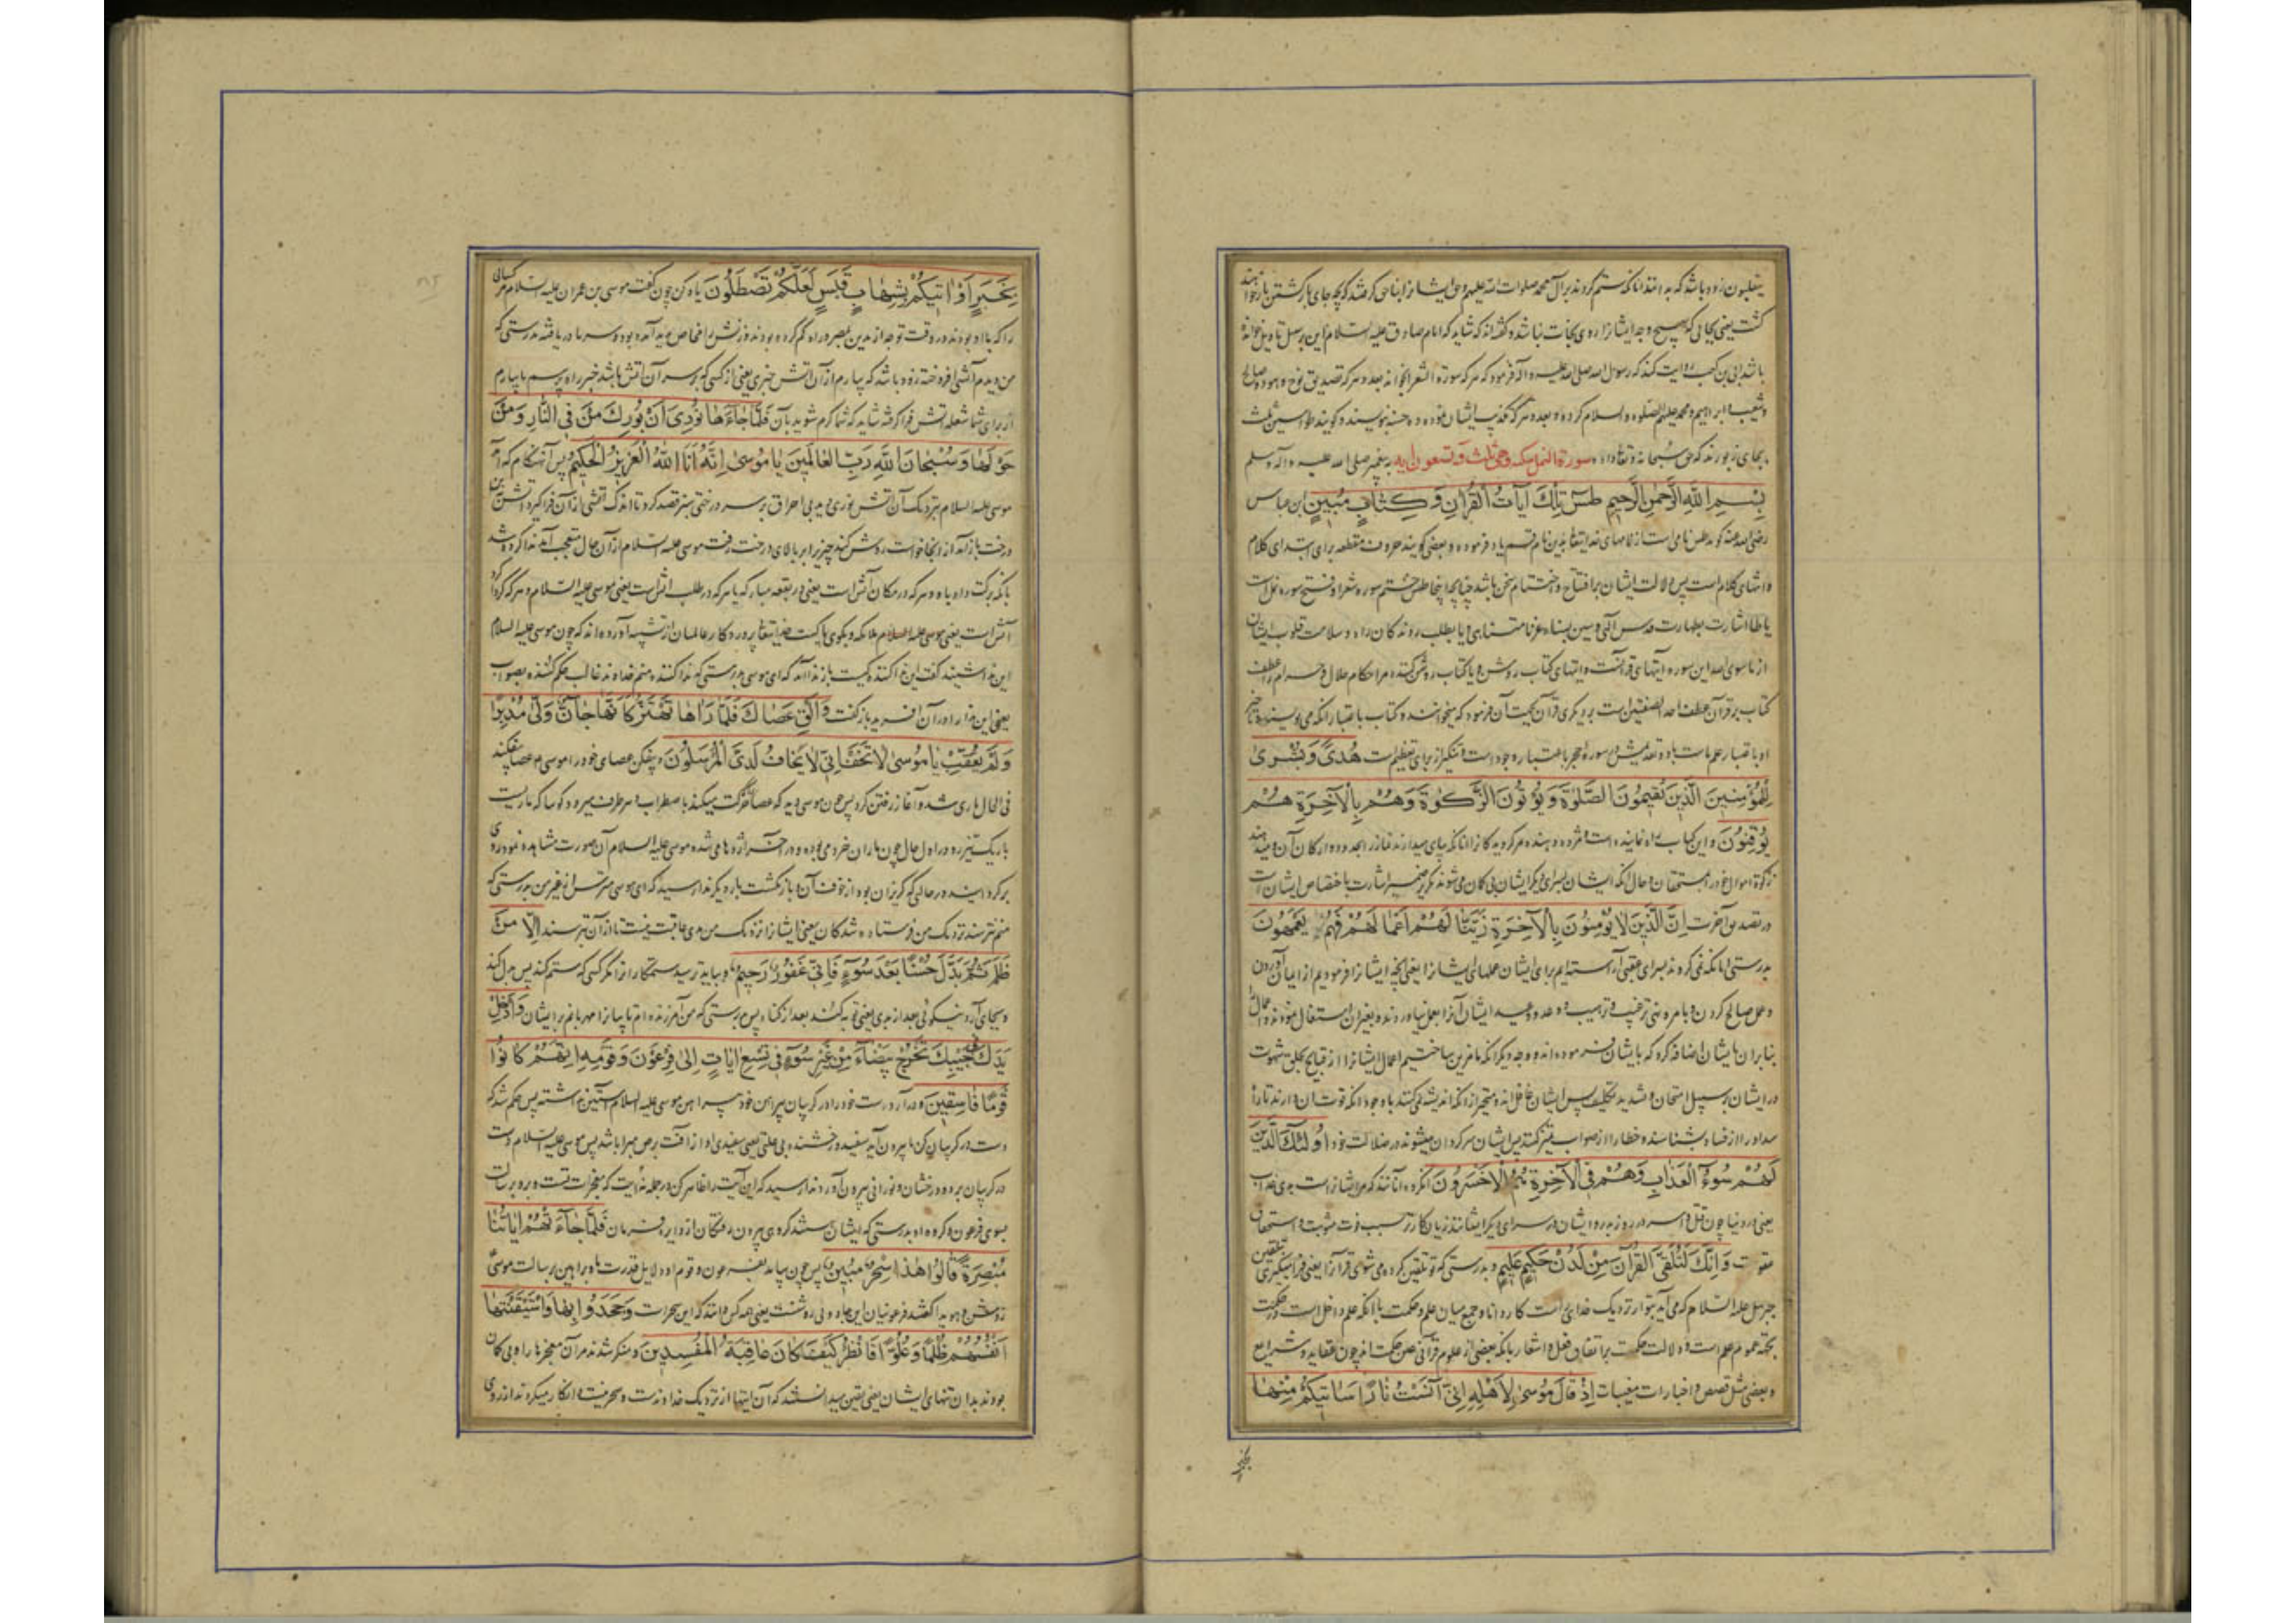 ینقلبون زود باشد که بدانند آنانکه ستم کردند بر آل محمد صلوات الله علیهم و حق ایشانرا بناحق گرفتند که بچه جای بازگشتن باز خواهند
گشت یعنی بجائی که بهیچ وجه ایشانرا روی نجات نباشد و گفته‌اند که شاید که امام صادق علیه السلام این بر سبیل تاویل خوانده
باشد ابی بن کعب روایت کند که رسول الله صلی الله علیه و آله فرمود که هر که سورة الشعرا بخواند بعدد هر که تصدیق نوح و هود و صالح
و شعیب و ابراهیم و محمد علیهم الصلوة والسلام کرده و بعدد هر که تکذیب ایشان نموده ده حسنه بنویسند و گویند طواسین ثلث
بجای زبورند که حق سبحانه و تعالی داده سورة النمل مکیه وهی ثلث و تسعون ایه به پیغمبر صلی الله علیه و آله وسلم
بِسْمِ اللهِ الرَّحْمٰنِ الرَّحِيمِ طس تِلْكَ آيَاتُ الْقُرْاٰنِ وَكِتَابٍ مُبِينٍ ابن عباس
رضی الله عنه گوید طس نامی است از نامهای خدایتعالی بدین نام قسم یاد فرموده و بعضی گویند حروف مقطعه برای ابتدای کلام
و انتهای کلام است پس دلالت ایشان بر افتتاح و اختتام سخن باشد چنانچه اینجا طس ختم سوره شعرا و فتح سوره نمل است
یا طا اشارت بطهارت قدس الهی و سین بسناء عز نامتناهی و یا بطلب روندکان راه و سلامت قلوب ایشان
از ماسوی الله این سوره آیتهای قرآنست و ایتهای کتاب روشن و یا کتاب روشن کننده مر احکام حلال و حرام را عطف
کتاب بر قرآن عطف احد الصفتین است بر دیگری قرآن بجهت آن فرمود که میخوانند و کتاب باعتبار آنکه می‌نویسند و تاخیر
او باعتبار علم ماست باو و تقدیمش در سوره حجر باعتبار وجود است و تنکیر از برای تعظیم است هُدًى وَبُشْرٰى
لِلْمُؤْمِنِينَ الَّذِينَ يُقِيمُونَ الصَّلٰوةَ وَيُؤْتُونَ الزَّكٰوةَ وَهُمْ بِالْاٰخِرَةِ هُمْ
يُوقِنُونَ و این کتاب راه نماینده است و مژده دهنده مر گرویدکان را آنانکه بپای میدارند نماز را بحدود و ارکان آن و میدهند
زکوة اموال خود را بمستحقان و حال آنکه ایشان بسرای دیگر ایشان بی گمان می‌شوند تکریر ضمیر اشارت باختصاص ایشان است
در تصدیق آخرت اِنَّ الَّذِينَ لَا يُؤْمِنُونَ بِالْاٰخِرَةِ زَيَّنَّا لَهُمْ اَعْمَالَهُمْ فَهُمْ يَعْمَهُونَ
بدرستی آنانکه نمی‌گروند بسرای عقبی آراسته‌ایم برای ایشان عملهای ایشانرا یعنی آنچه ایشانرا فرمودیم از ایمان آوردن
و عمل صالح کردن و بامر و نهی ترغیب و ترهیب و وعد و وعید ایشان آنرا بعمل نیاوردند و بغیر آن اشتغال نمودند و اعمال را
بنابر ان بایشان اضافه کرد که بایشان فرموده‌اند و وجه دیگر آنکه ما مزین ساختیم اعمال ایشانرا از قبایح بخلق شهوت
در ایشان بر سبیل امتحان و تشدید تکلیف پس ایشان غافل‌اند و متحیر از آنکه اندیشه نمی‌کنند با وجود آنکه قوت آن دارند تا راه
سداد را از فساد بشناسند و خطا را از صواب تمیز کنند پس ایشان سرگردان میشوند در ضلالت خود اُولٰئِكَ الَّذِينَ
لَهُمْ سُوءُ الْعَذَابِ وَهُمْ فِي الْاٰخِرَةِ هُمُ الْاَخْسَرُونَ آنگروه آنانند که مر ایشانراست بدی عذاب
یعنی در دنیا چون قتل و اسر در روز بدر و ایشان در سرای دیگر ایشانند زیان‌کارتر بسبب فوت مثوبت و استحقاق
عقوبت وَاِنَّكَ لَتُلَقَّى الْقُرْاٰنَ مِنْ لَدُنْ حَكِيمٍ عَلِيمٍ و بدرستی که تو تلقین کرده می‌شوی قرآنرا یعنی فرا میگیری بتلقین
جبرئیل علیه السلام که می‌آید بتو از نزدیک خدای راست کار دانا و جمع میان علم و حکمت با آنکه علم داخل است در حکمت
بجهة عموم علم است و دلالت حکمت بر اتقان فعل و اشعار بانکه بعضی از علوم قرآنی عین حکمت اند چون عقاید و شرایع
و بعضی مثل قصص و اخبارات مغیبات اِذْ قَالَ مُوسٰى لِاَهْلِهِ اِنِّي اٰنَسْتُ نَارًا سَاٰتِيكُمْ مِنْهَا
بخبر
بِخَبَرٍ اَوْ اٰتِيكُمْ بِشِهَابٍ قَبَسٍ لَعَلَّكُمْ تَصْطَلُونَ یاد کن چون گفت موسی بن عمران علیه السلام مر کسانی
را که با او بودند در وقت توجه از مدین بمصر و راه گم کرده بودند و زنش را مخاض پدید آمده بود و سرما دریافته بدرستی که
من دیدم آتشی افروخته زود باشد که بیارم از آن آتش خبری یعنی از کسی که بر سر آن آتش باشد خبر راه پرسم یا بیارم
از برای شما شعله آتش فرا گرفته شاید که شما گرم شوید بآن فَلَمَّا جَاءَهَا نُودِيَ اَنْ بُورِكَ مَنْ فِي النَّارِ وَمَنْ
حَوْلَهَا وَسُبْحَانَ اللهِ رَبِّ الْعَالَمِينَ يَا مُوسٰى اِنَّهُ اَنَا اللهُ الْعَزِيزُ الْحَكِيمُ پس آنهنگام که آمد
موسی علیه السلام بنزدیک آن آتش نوری دید بی احراق بر سر درختی سبز قصد کرد تا اندک آتشی از آن فرا گیرد آتش ازین
درخت باز آمد از انجا خواست روشن کند چیزی را بر بالای درخت رفت موسی علیه السلام از آن حال متعجب آمد ندا کرده شد
بانکه برکت داده باد هر که در مکان آتش است یعنی در بقعه مبارکه یا هر که در طلب آتش است یعنی موسی علیه السلام و هر که گرداگرد
آتش است یعنی موسی علیه السلام ملائکه و بگوی پاکست خدایتعالی پروردکار عالمیان از تشبیه آورده‌اند که چون موسی علیه السلام
این ندا شنید گفت این ندا کننده کیست باز ندا آمد که ای موسی بدرستی که ندا کننده منم خداوند غالب حکم کننده بصواب
یعنی این ندا را در آن آفرید باز گفت وَاَلْقِ عَصَاكَ فَلَمَّا رَاٰهَا تَهْتَزُّ كَاَنَّهَا جَانٌّ وَلّٰى مُدْبِرًا
وَلَمْ يُعَقِّبْ يَا مُوسٰى لَا تَخَفْ اِنِّي لَا يَخَافُ لَدَيَّ الْمُرْسَلُونَ و بیفکن عصای خود را موسی عصا بیفکند
فی الحال ماری شد و آغاز رفتن کرد پس چون موسی دید که عصا حرکت میکند باضطراب و هر طرف میرود گویا که ماریست
باریک تیز رو در اول حال چون ماران خرد می‌بوده و در آخر اژدها می‌شده موسی علیه السلام آن صورت مشاهده نمود روی
برگردانید در حالی که گریزان بود از خوف آن و باز نگشت بار دیگر ندا رسید که ای موسی مترس از غیر من بدرستی که
منم نترسند نزدیک من فرستاده شدکان یعنی ایشانرا نزدیک من بدی عاقبت نیست تا از آن بترسند اِلَّا مَنْ
ظَلَمَ ثُمَّ بَدَّلَ حُسْنًا بَعْدَ سُوءٍ فَاِنِّي غَفُورٌ رَحِيمٌ و بباید ترسید ستمکار را از مگر کسی که ستم کند پس بدل کند
و بجای آرد نیکوئی بعد از بدی یعنی توبه کند بعد از گناه پس بدرستی که من آمرزنده‌ام تایبانرا مهربانم بر ایشان وَاَدْخِلْ
يَدَكَ فِي جَيْبِكَ تَخْرُجْ بَيْضَاءَ مِنْ غَيْرِ سُوءٍ فِي تِسْعِ اٰيَاتٍ اِلٰى فِرْعَوْنَ وَقَوْمِهِ اِنَّهُمْ كَانُوا
قَوْمًا فَاسِقِينَ و درآر دست خود را در گریبان پیراهن خود پیراهن موسی علیه السلام آستین نداشته پس حکم شد که
دست در گریبان کن تا بیرون آید سفید درخشنده بی علتی یعنی سفیدی او از آفت برص مبرا باشد پس موسی علیه السلام دست
در گریبان برده و درخشان و نورانی بیرون آورد ندا رسید که این آیت را ظاهر کن در جمله نه آیت که معجزات تست و برو برسالت
بسوی فرعون و گروه او بدرستی که ایشان هستند گروهی بیرون رفتکان از دایره فرمان فَلَمَّا جَاءَتْهُمْ اٰيَاتُنَا
مُبْصِرَةً قَالُوا هٰذَا سِحْرٌ مُبِينٌ پس چون بیامد بفرعون و قوم او دلایل قدرت ما و براهین رسالت موسی
روشن و هویدا گفتند فرعونیان این جادوئی روشنست یعنی همه کس دانند که این سحرست وَجَحَدُوا بِهَا وَاسْتَيْقَنَتْهَا
اَنْفُسُهُمْ ظُلْمًا وَعُلُوًّا فَانْظُرْ كَيْفَ كَانَ عَاقِبَةُ الْمُفْسِدِينَ و منکر شدند مر آن معجزها را و بی گمان
بودند بدان تنهای ایشان یعنی یقین میدانستند که آن ایتها از نزدیک خداوندست و سحر نیست و انکار میکردند از روی